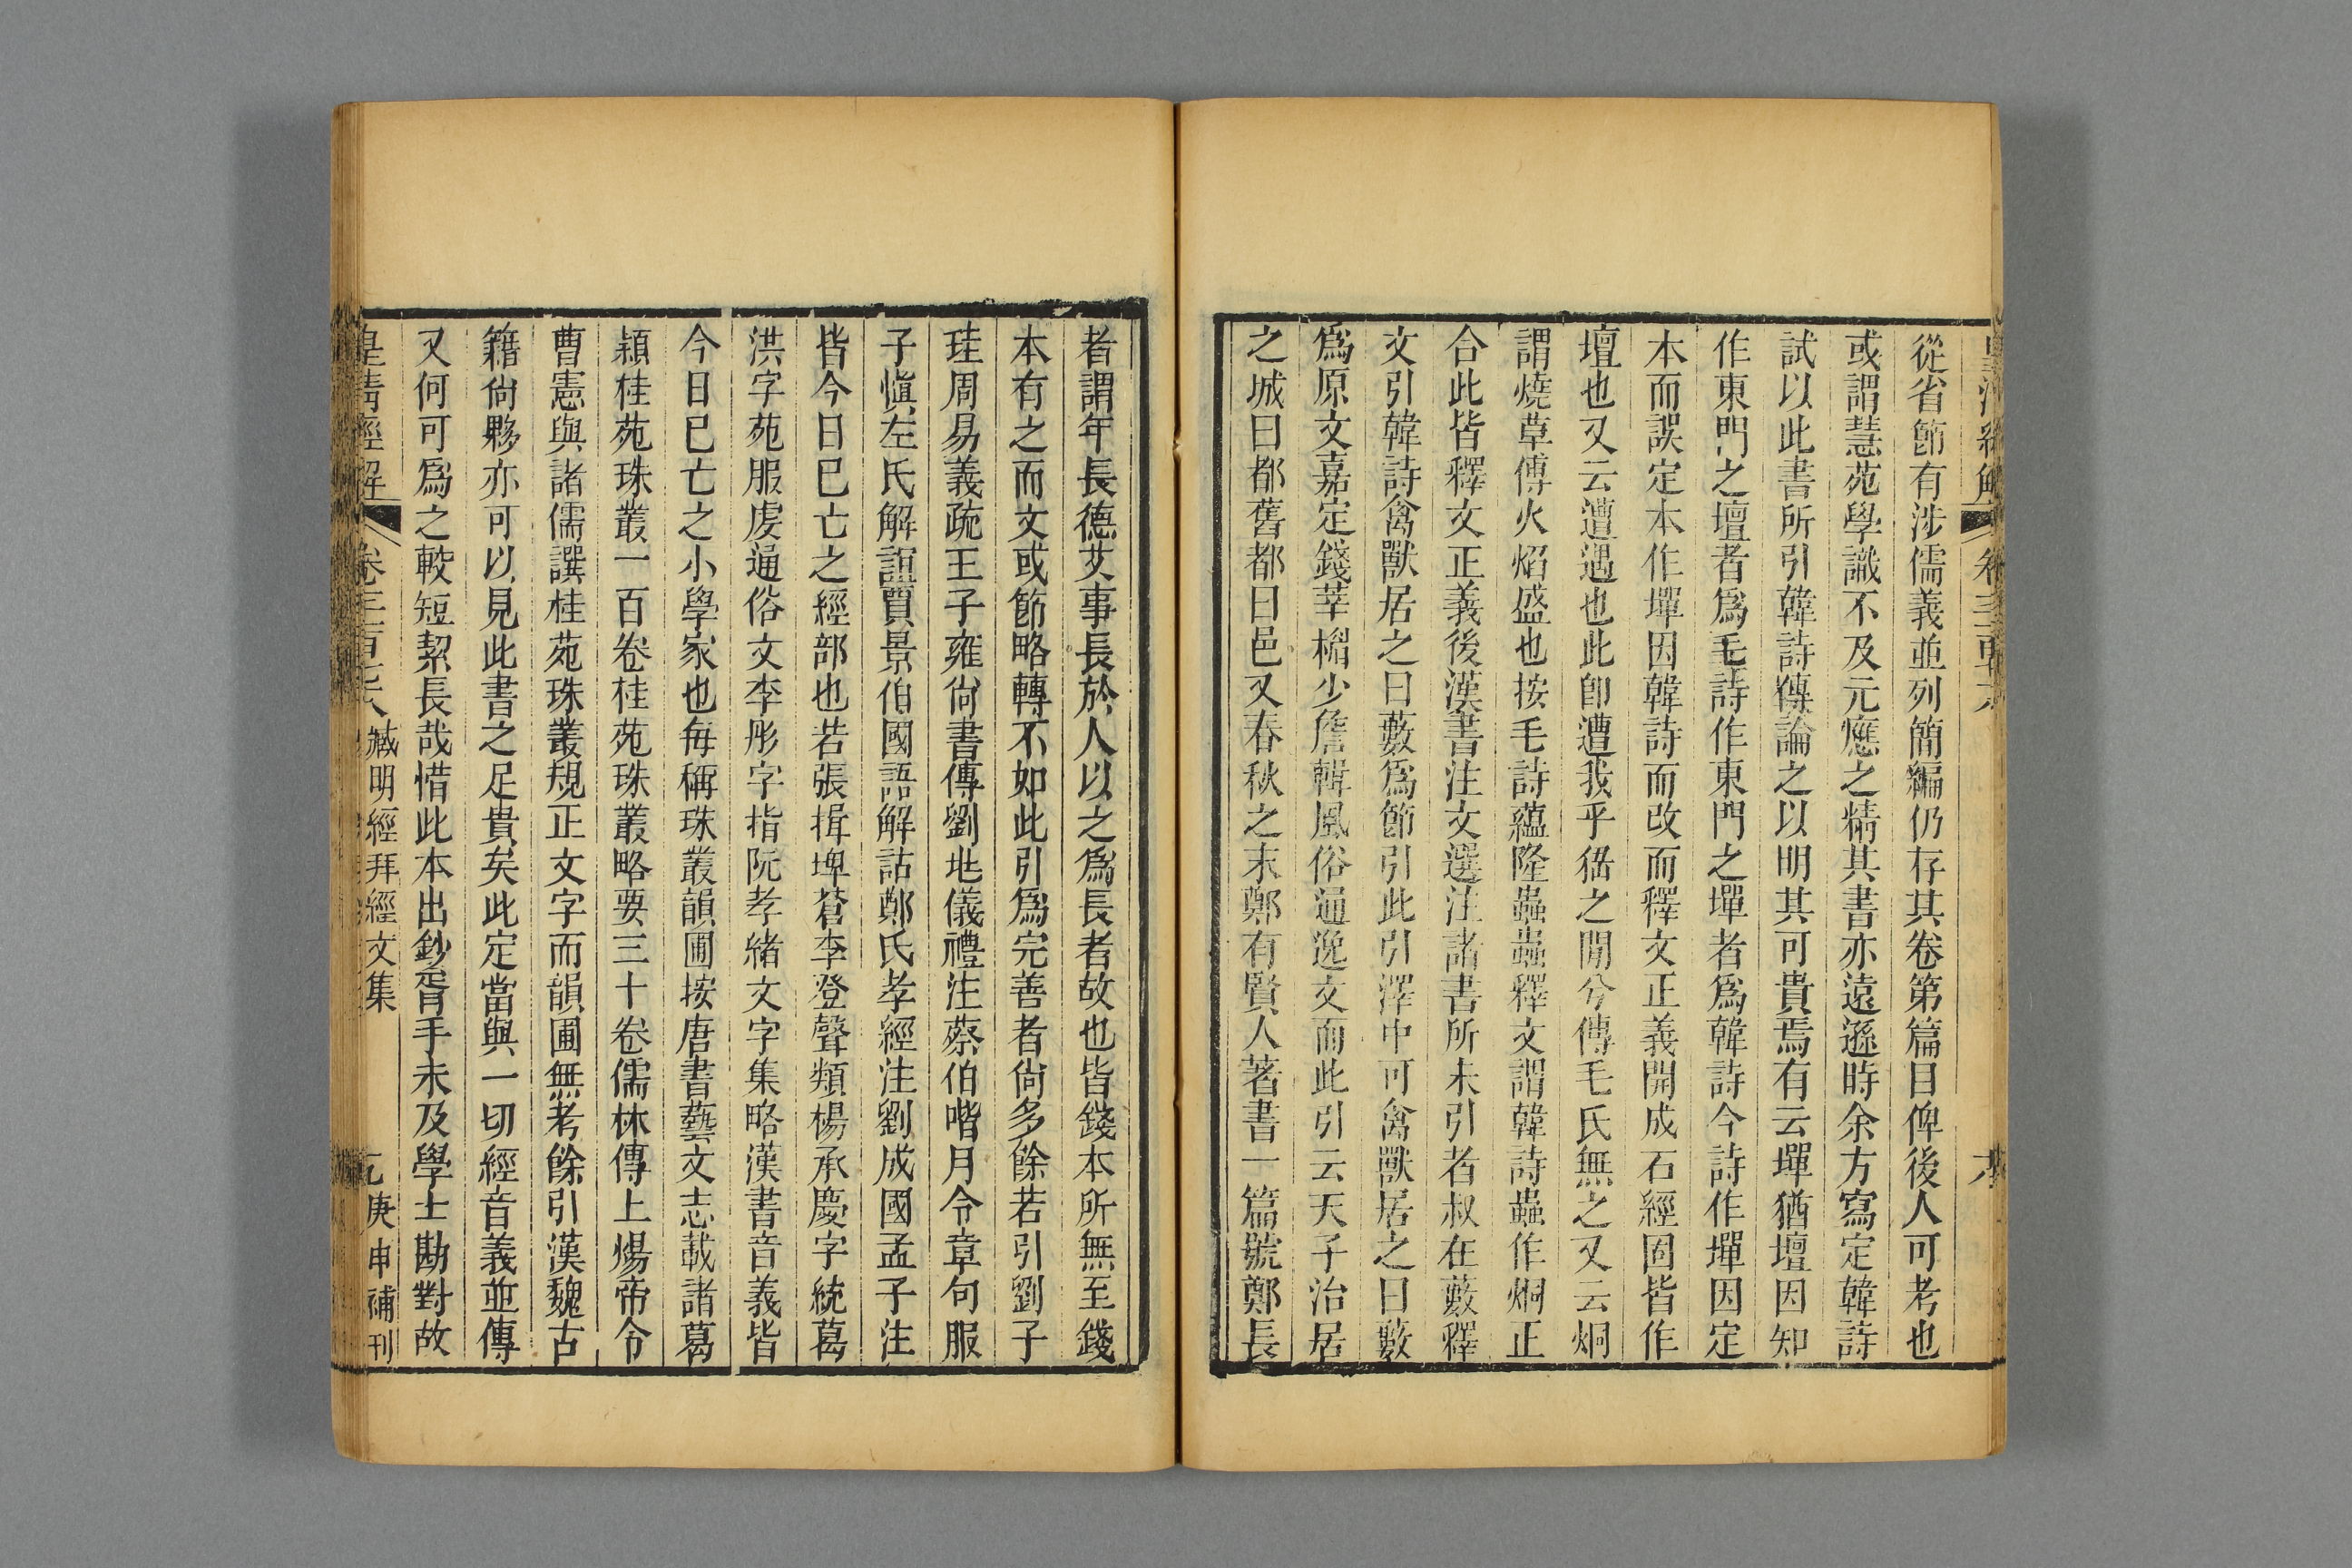 從省節有涉儒義並列簡編仍存其卷第篇目俾後人可考也
或謂慧苑學識不及元應之精其書亦遠遜時余方寫定韓詩
試以此書所引韓詩傳論之以明其可貴焉有云墠猶壇因知
作東門之壇者爲毛詩作東門之墠者爲韓詩今詩作墠因定
本而誤定本作墠因韓詩而改而釋文正義開成石經固皆作
壇也又云遭遇也此卽遭我乎峱之閒兮傳毛氏無之又云烔
謂燒草傅火焰盛也按毛詩蘊隆蟲蟲釋文謂韓詩蟲作烔正
合此皆釋文正義後漢書注文選注諸書所未引者叔在藪釋
文引韓詩禽獸居之曰藪爲節引此引澤中可禽獸居之曰藪
爲原文嘉定錢莘楣少詹輯風俗通逸文而此引云天子治居
之城曰都舊都曰邑又春秋之末鄭有賢人著書一篇號鄭長
者謂年長德艾事長於人以之爲長者故也皆錢本所無至錢
本有之而文或節略轉不如此引爲完善者尙多餘若引劉子
珪周易義疏王子雍尙書傳劉兆儀禮注蔡伯喈月令章句服
子愼左氏解誼賈景伯國語解詁鄭氏孝經注劉成國孟子注
皆今日已亡之經部也若張揖埤蒼李登聲類楊承慶字統葛
洪字苑服虔通俗文李彤字指阮孝緒文字集略漢書音義皆
今日已亡之小學家也每稱珠叢韻圃按唐書藝文志載諸葛
穎桂苑珠叢一百卷桂苑珠叢略要三十卷儒林傳上煬帝令
曹憲與諸儒譔桂苑珠叢規正文字而韻圃無考餘引漢魏古
籍尙夥亦可以見此書之足貴矣此定當與一切經音義並傳
又何可爲之較短絜長哉惜此本出鈔胥手未及學士勘對故
皇淸經解 卷 臧明經拜經文集 庚申補刊